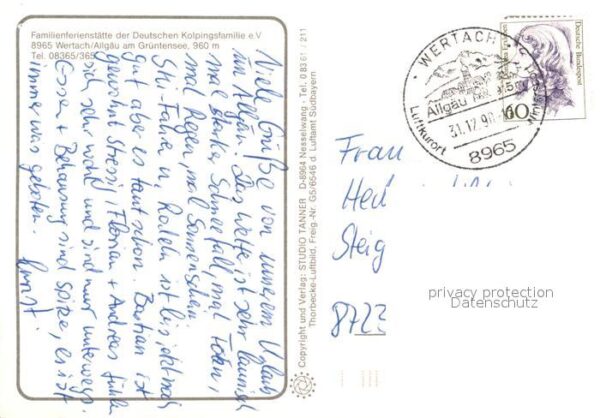 Familienferienstätte der Deutschen Kolpingsfamilie e.V
8965 Wertach/Allgäu am Grüntensee, 960 m
Tel. 08365/365
Viele Grüße von unserem Urlaub
im Allgäu. Das Wetter ist sehr launisch
mal starke Schneefall, mal Föhn,
mal Regen, mal Sonnenschein.
Ski-Fahren u. Rodeln ist bis jetzt noch
gut, aber es taut schon. Bastian ist
gewohnt stressig, Florian + Andreas fühlen
sich sehr wohl und sind nur unterwegs.
Essen + Behausung sind Spitze, es ist
immer was geboten.
Copyright und Verlag: STUDIO TANNER D-8964 Nesselwang · Tel. 08361/211
Thorbecke-Luftbild, Freig.-Nr. GS/6546 d. Luftamt Südbayern
WERTACH
Allgäu
31.12.90
Luftkurort
8965
Deutsche Bundespost
60
Frau
Hed
Steig
8723
privacy protection
Datenschutz